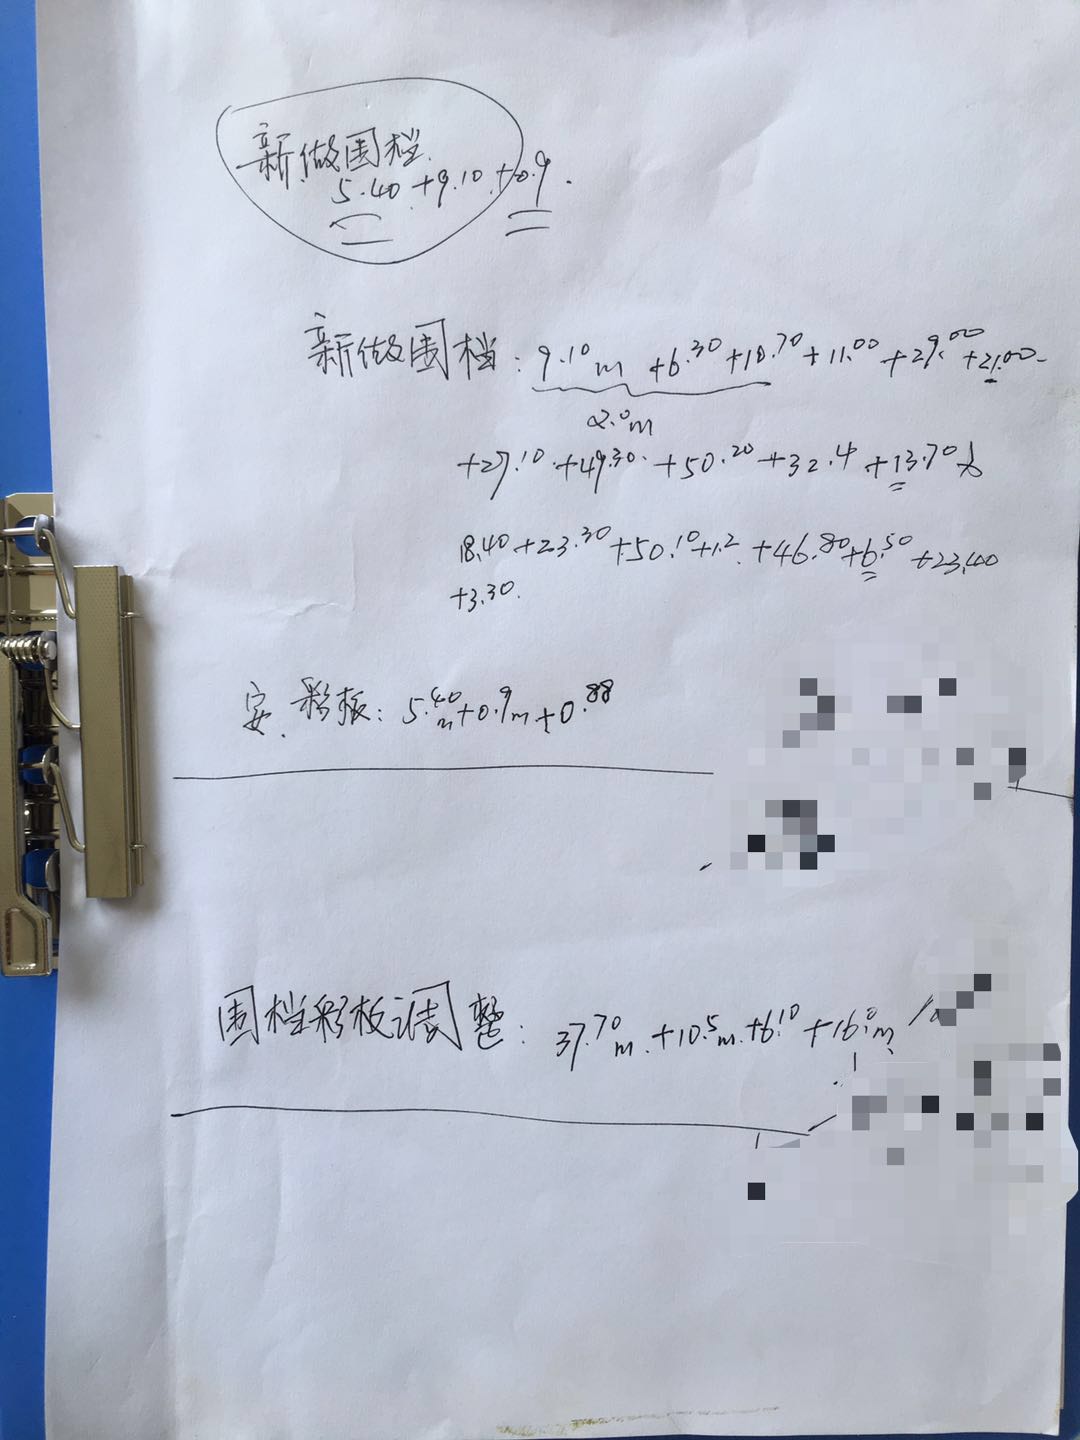 新做围档
5.40+9.10+0.9.
新做围档: 9.10m+6.30+10.70+11.00+29.00+21.00
2.0m
+27.10+49.30+50.20+32.4+13.70
18.40+23.30+50.10+1.2+46.80+6.50+23.40
+3.30.
安.彩板: 5.40m+0.9m+0.88
围档彩板调整: 37.70m+10.5m+6.10+16.0m